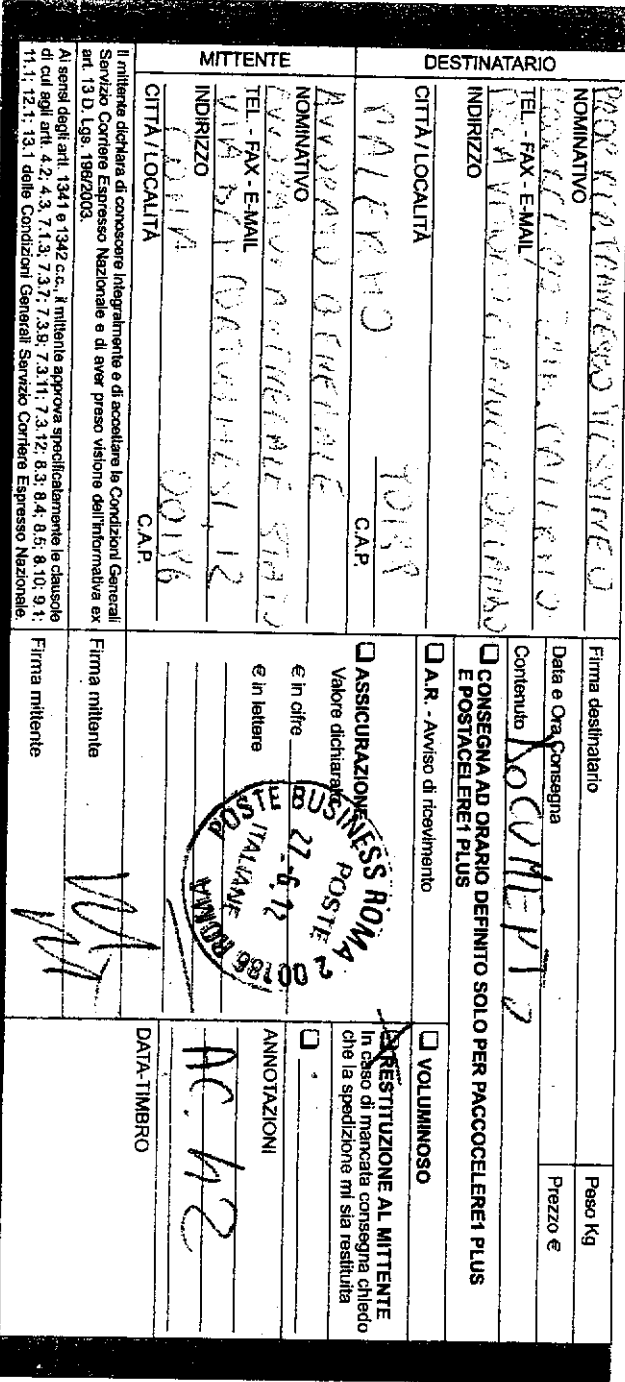 DESTINATARIO
DOTT. FRANCESCO MESSINEO
NOMINATIVO
TEL. - FAX - E-MAIL
INDIRIZZO
PALERMO 90138
CITTÀ / LOCALITÀ C.A.P.
MITTENTE
AVVOCATO GENERALE
NOMINATIVO
AVVOCATURA GENERALE STATO
TEL. - FAX - E-MAIL
VIA DEI PORTOGHESI, 12
INDIRIZZO
ROMA 00186
CITTÀ / LOCALITÀ C.A.P.
Il mittente dichiara di conoscere integralmente e di accettare le Condizioni Generali
Servizio Corriere Espresso Nazionale e di aver preso visione dell'informativa ex
art. 13 D. Lgs. 196/2003.
Ai sensi degli artt. 1341 e 1342 c.c., il mittente approva specificatamente le clausole
di cui agli artt. 4.2; 4.3, 7.1.3; 7.3.7; 7.3.9; 7.3.11; 7.3.12; 8.3; 8.4; 8.5; 8.10; 9.1;
11.1; 12.1; 13.1 delle Condizioni Generali Servizio Corriere Espresso Nazionale.
Firma destinatario
Data e Ora Consegna
Contenuto DOCUMENTI
Peso Kg
Prezzo €
CONSEGNA AD ORARIO DEFINITO SOLO PER PACCOCELERE1 PLUS
E POSTACELERE1 PLUS
A.R. - Avviso di ricevimento
VOLUMINOSO
ASSICURAZIONE
Valore dichiarato
€ in cifre
€ in lettere
POSTE BUSINESS ROMA 2
POSTE
27.6.12
ITALIANE
00186 ROMA
RESTITUZIONE AL MITTENTE
In caso di mancata consegna chiedo
che la spedizione mi sia restituita
ANNOTAZIONI
AC. 42
Firma mittente
Firma mittente
DATA-TIMBRO